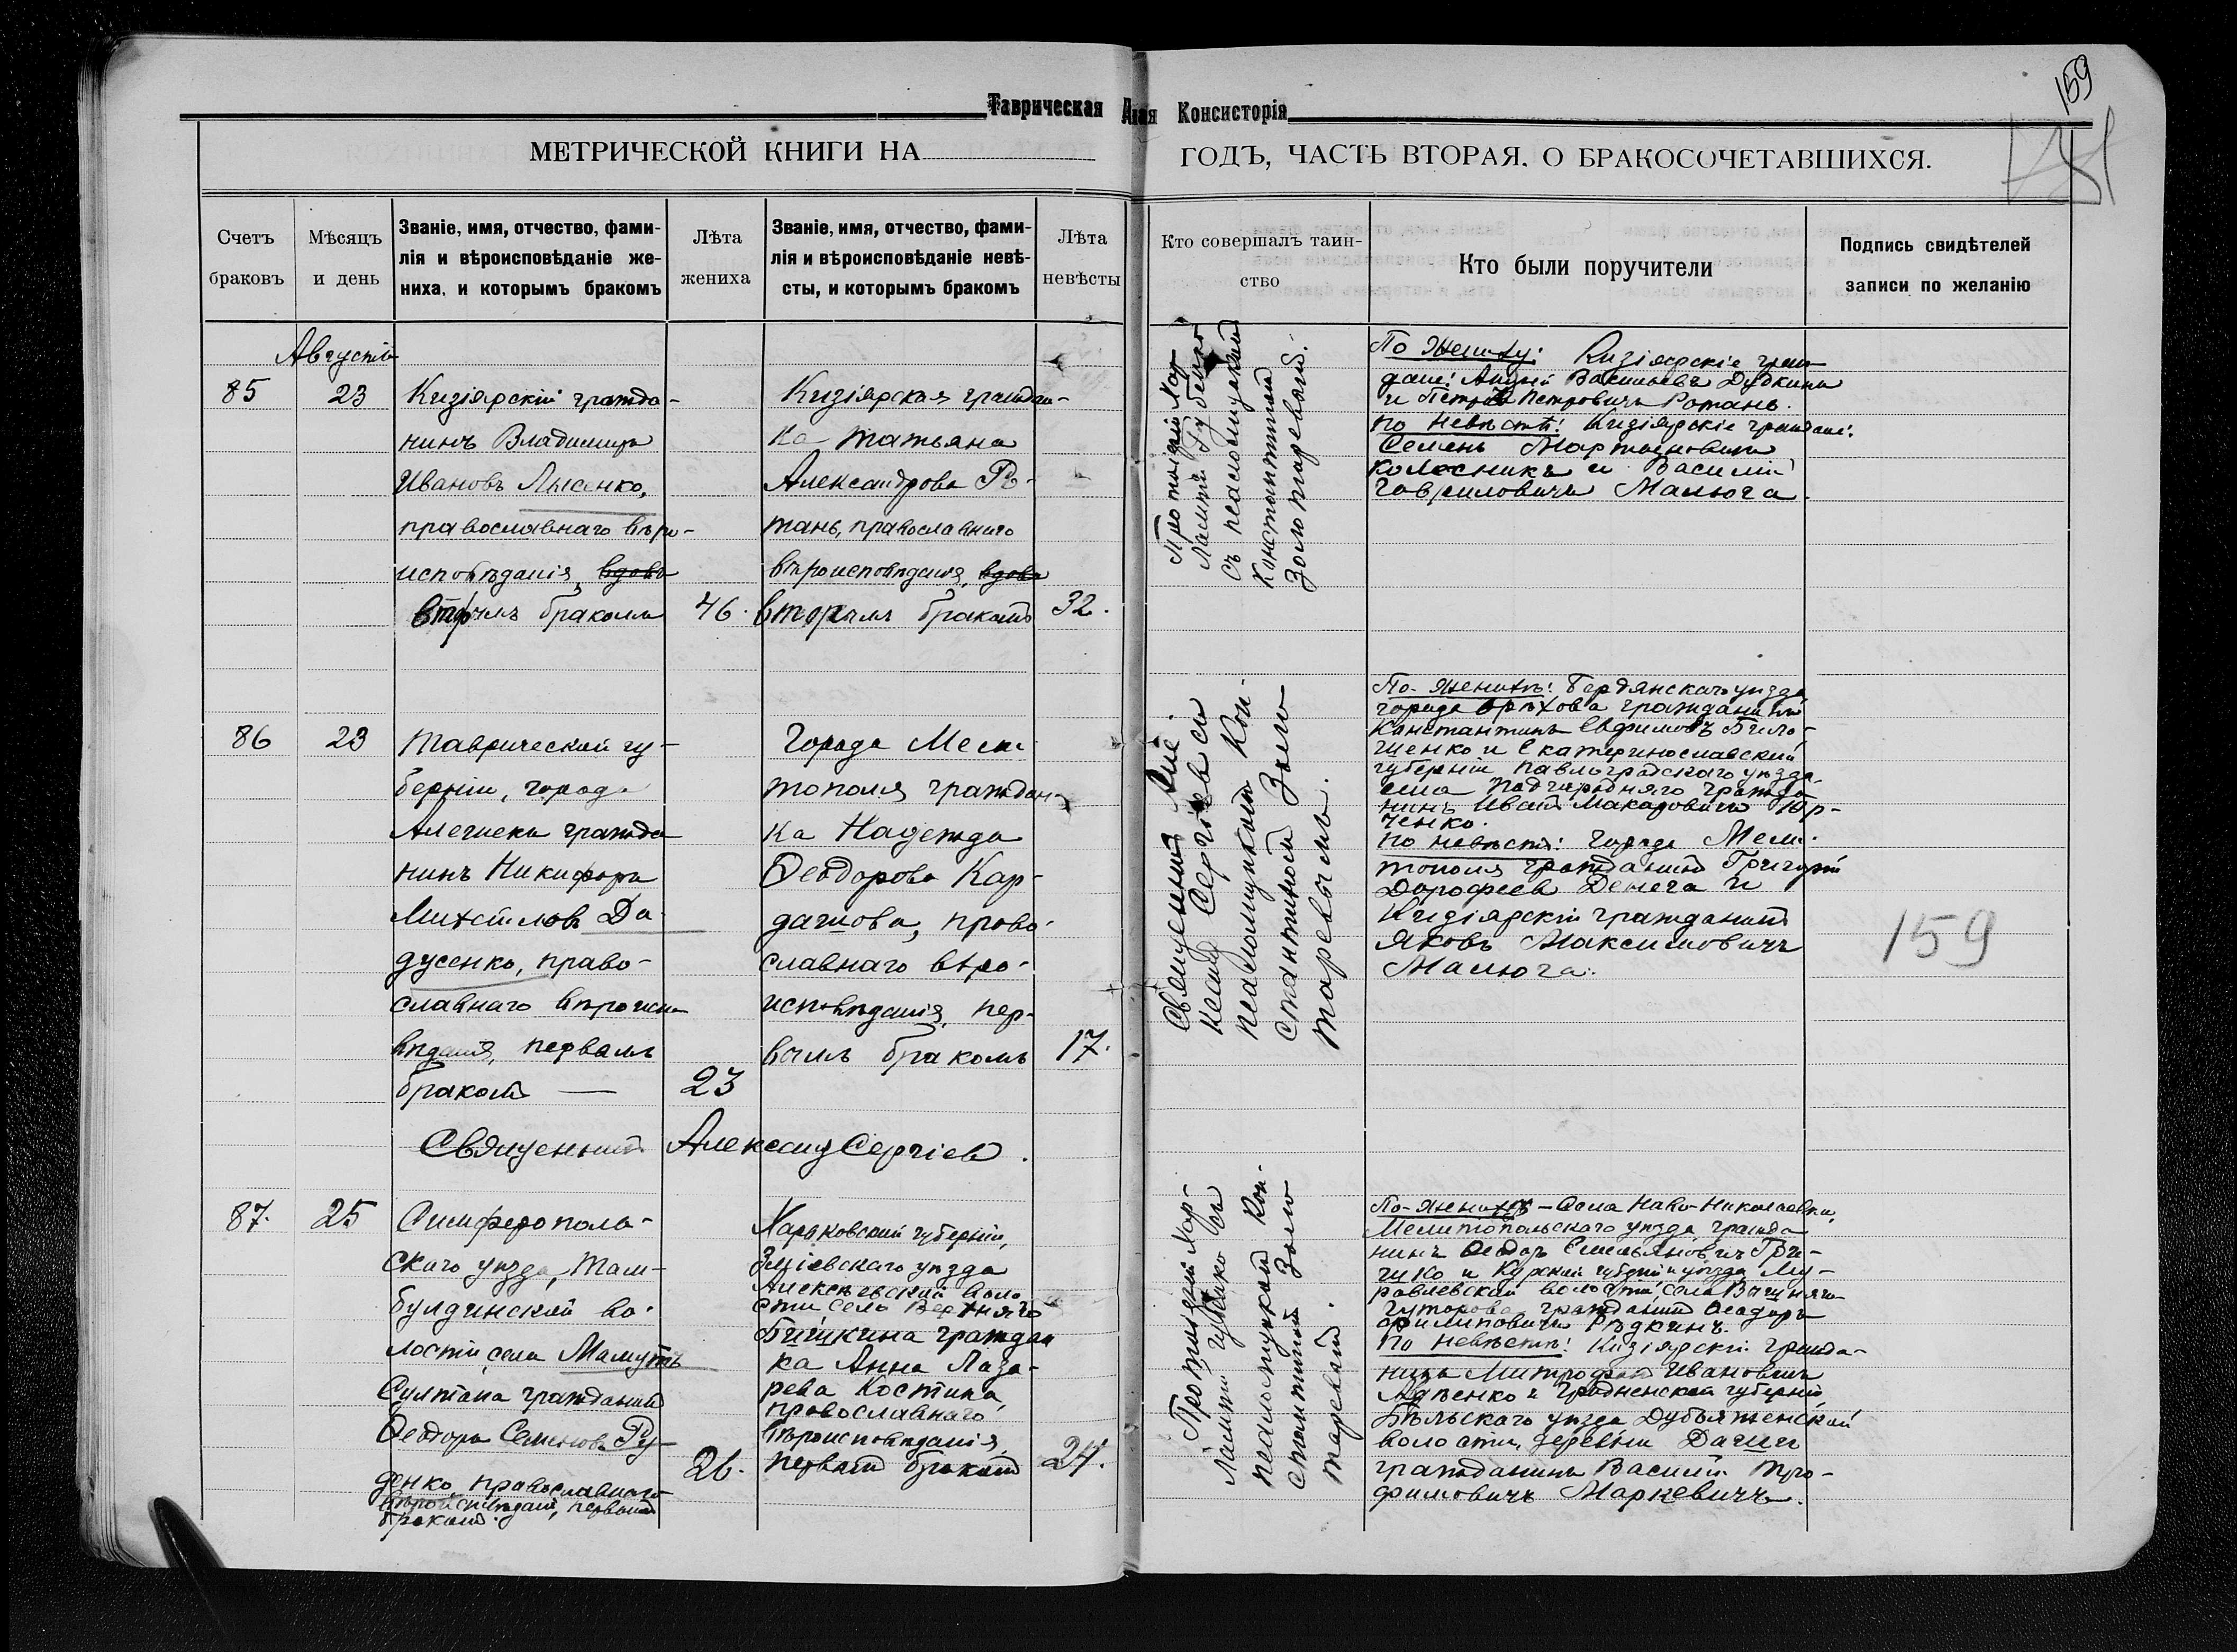 159
Таврическая
Консисторія
МЕТРИЧЕСКОЙ КНИГИ НА
ГОДЪ, ЧАСТЬ ВТОРАЯ, О БРАКОСОЧЕТАВШИХСЯ.
Счетъ
браковъ
Мѣсяцъ
и день
Званіе, имя, отчество, фами-
лія и вѣроисповѣданіе же-
ниха, и которымъ бракомъ
Лѣта
жениха
Званіе, имя, отчество, фами-
лія и вѣроисповѣданіе невѣ-
сты, и которымъ бракомъ
Лѣта
невѣсты
Кто совершалъ таин-
ство
Кто были поручители
Подпись свидѣтелей
записи по желанію
Августъ
85
23
Кизіярскій гражда-
нинъ Владиміръ
Ивановъ Лысенко,
православнаго вѣро-
исповѣданія, вдова
вторымъ бракомъ
46.
Кизіярская граждан-
ка Татьяна
Александрова Ро-
тань, православнаго
вѣроисповѣданія, вдова
вторымъ бракомъ
32.
Протоіерей Хар-
лампій Губенко
съ псаломщикомъ
Константиномъ
Золотаревымъ.
По жениху: Кизіярскіе граж-
дане: Андрей Васильевъ Дудкинъ
и Петръ Петровичъ Ротань.
По невѣстѣ: Кизіярскіе граждане:
Семенъ Мартыновичъ
Колесникъ и Василій
Гавриловичъ Малюга.
86
23
Таврической гу-
берніи, города
Алешекъ гражда-
нинъ Никифоръ
Михайловъ Да-
дусенко, право-
славнаго вѣроиспо-
вѣданія, первымъ
бракомъ —
23
Города Мели-
тополя граждан-
ка Надежда
Ѳеодорова Кар-
дашова, право-
славнаго вѣро-
исповѣданія, пер-
вымъ бракомъ
17.
Священникъ Але-
ксандръ Сергіевъ съ
псаломщикомъ Кон-
стантиномъ Золо-
таревымъ.
По жениху: Бердянскаго уѣзда,
города Орѣхова гражданинъ
Константинъ Евфимовъ Било-
шенко и Екатеринославской
губерніи Павлоградскаго уѣзда
села Подгороднаго гражда-
нинъ Иванъ Макаровичъ Юр-
ченко.
По невѣстѣ: города Мели-
тополя гражданинъ Григорій
Дорофеевъ Денега и
Кизіярскій гражданинъ
Яковъ Максимовичъ
Малюга.
159
Священникъ Александръ Сергіевъ.
87.
25
Симферополь-
скаго уѣзда, Там-
булдинской во-
лости села Мамутъ
Султана гражданинъ
Ѳеодоръ Семеновъ Ру-
денко, православнаго
вѣроисповѣданія, первымъ
бракомъ.
26.
Харьковской губерніи,
Зміевскаго уѣзда
Алексѣевской воло-
сти села Верхняго
Бишкина граждан-
ка Анна Лаза-
рева Костина,
православнаго
вѣроисповѣданія,
первымъ бракомъ
24.
Протоіерей Хар-
лампій Губенко съ
псаломщикомъ Кон-
стантиномъ Золо-
таревымъ.
По жениху — села Ново-Николаевки,
Мелитопольскаго уѣзда гражда-
нинъ Ѳеодоръ Емельяновичъ Гри-
цко и Курской губерніи и уѣзда Му-
равлевской волости, села Вышняго
Гуторова гражданинъ Ѳеодоръ
Филиповичъ Рѣдкинъ.
По невѣстѣ: Кизіярскій гражда-
нинъ Митрофанъ Ивановичъ
и Гродненской губерніи,
Бѣльскаго уѣзда Дубяженской
волости, деревни Даши
гражданинъ Василій Тро-
фимовичъ Маркевичъ.